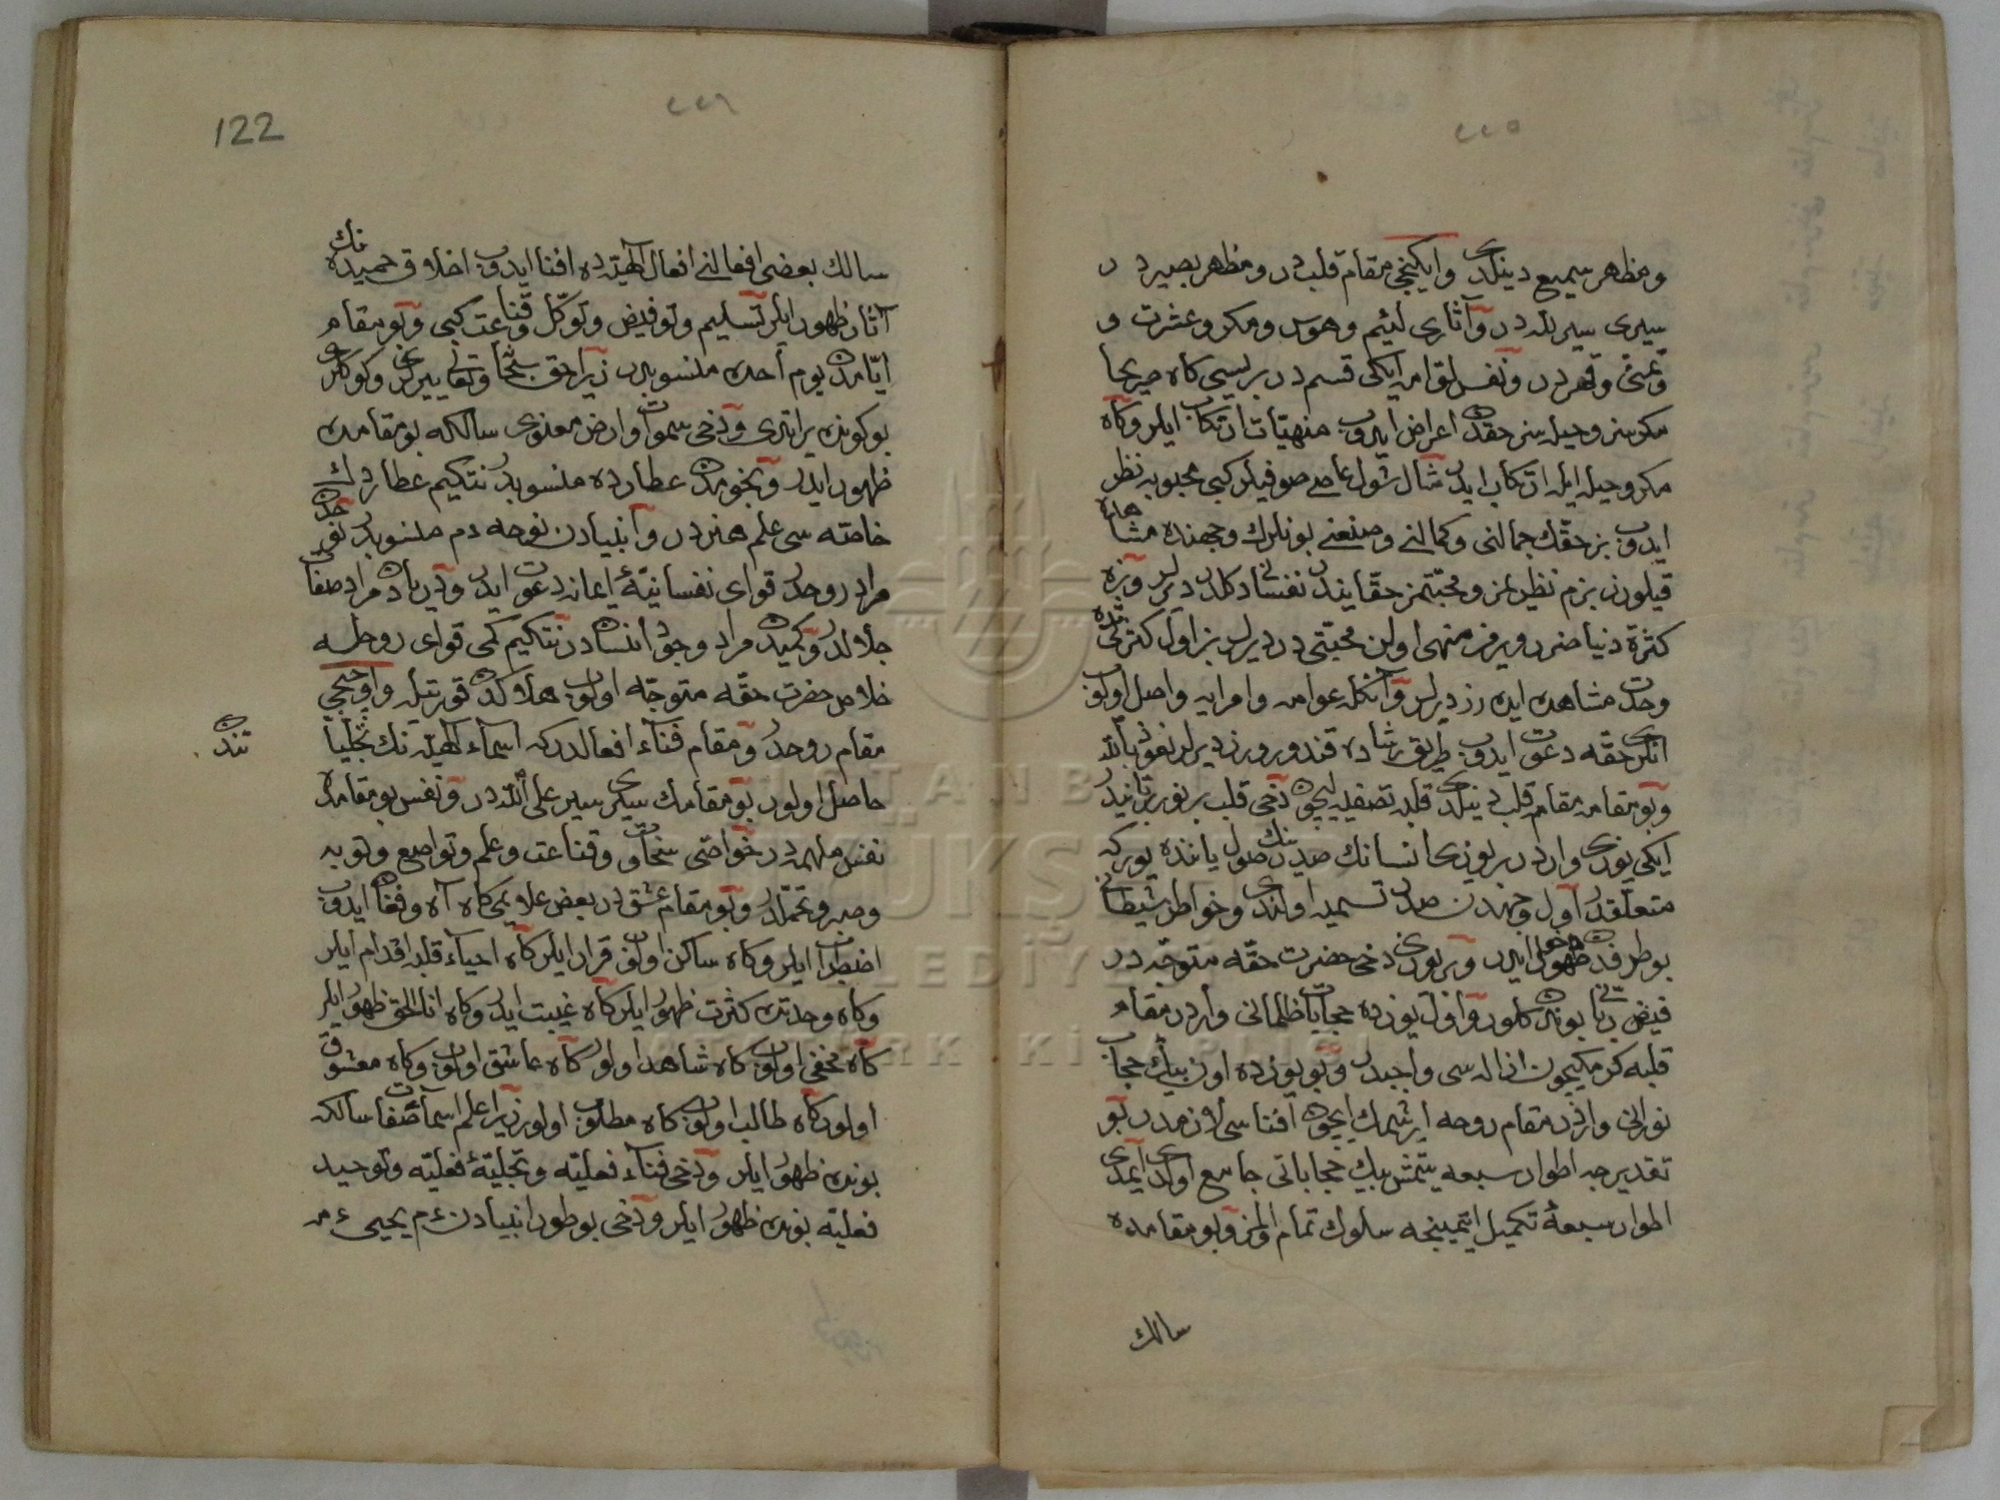 ٢٢٥
ومظهر سميع دينلدى وايكنجى مقام قلبدر ومظهر بصيردر
سيرى سير لله در وآثارى لئيم وهوس ومكر وعشرت و
وغمئ وقهردر ونفس لوامه ايكى قسمدر بريسى كاه صريحا
مكرسز وحيله سز حقدن اعراض ايدوب منهيات ارتكاب ايلر وكاه
مكر وحيله ايله ارتكاب ايدر مثال شول عاصى صوفيلر كبى محبوبه نظر
ايدوب بز حقك جمالنى وكمالنى وصنعنى بونلرك وجهنده مشاهده
قيلورز بزم نظيرمز ومحبتمز حقانيدر نفسانى دكلدر ديرلر وبزه
كثرة دنيا ضرر ويرمز منهى اولن محبتى در ديرلر بز اول كثرتده
وحدت مشاهده ايدهرز ديرلر وآنكله عوامه وامرايه واصل اولوب
انلرى حقه دعوت ايدوب طريق رشاده قندورورز ديرلر نعوذ بالله
وبو مقامه مقام قلب دينلدى قلبه تصفيه ايچون دخى قلب بر نور ربانيدر
ايكى يوزى واردر بر يوزى انسانك صدرينك صول يانده يوركه
متعلقدر اول وجهدن صدر تسميه اولندى وخواطر شيطانى
بو طرفدن ظهور ايدر وبر يوزى دخى حضرت حقه متوجهدر
فيض ربانى بوندن كلور واول يوزده حجابات ظلمانى واردر مقام
قلبه كرمكيچون ازاله سى واجبدر وبو يوزده اون بيك حجاب
نورانى واردر مقام روحه ايرشمك ايچون افناسى لازمدر بو
تقديرجه اطوار سبعه يتمش بيك حجاباتى جامع اولدى ايمدى
اطوار سبعه تكميل ايتمينجه سلوك تمام اولمز وبو مقامده
سالك
٢٢٦
122
سالك بعضى افعالنى افعال الهيه ده افنا ايدوب اخلاق حميده نك
آثار ظهور ايلر تسليم وتوفيض وتوكل وقناعت كبى وبو مقام
ايامدن يوم أحده منسوبدر زيرا حق سبحانه وتعالى يير لرى وكوكلرى
بو كونده يراتدى ودخى سموات وارض معنوى سالكه بو مقامده
ظهور ايدر ونجومدن عطارده منسوبدر نتكيم عطاردك
خاصه سى علم هنردر وانبيادن نوحه دم منسوبدر نوحدن
مراد روحدر قواى نفسانيهٔ ايمانه دعوت ايدر ودريادن مراد صفات
جلالدر وكميدن مراد وجود انساندر نتكيم كمى قواى روحله
خلاص حضرت حقه متوجه اولوب هلاكدن قورتيله واوچنجى
مقام روحدر ومقام فناء افعالدركه اسماء الهيه نك تجليا
تندن
حاصل اولور بو مقامك سيرى سير على الله در ونفس بو مقامده
نفس ملهمه در خواصى سخاوت وقناعت وعلم وتواضع وتوبه
وصبر وتحملدر وبو مقام عشقدر بعض علايمى كاه آه وفغان ايدوب
اضطراب ايلر وكاه ساكن اولوب قرار ايلر كاه احياء قلبه اقدام ايلر
وكاه وحدتدن كثرت ظهور ايلر كاه غيبت ايدر وكاه انا الحق ظهور ايلر
كاه مخفى اولوب كاه شاهد اولور كاه عاشق اولوب وكاه معشوق
اولور كاه طالب اولوب كاه مطلوب اولور زيرا علم اسما صفات سالكه
بونده ظهور ايلر ودخى فناء فعليه وتجليهٔ فعليه وتوحيد
فعليه بونده ظهور ايلر ودخى بو طور انبيادن ءم يحيى ءمه